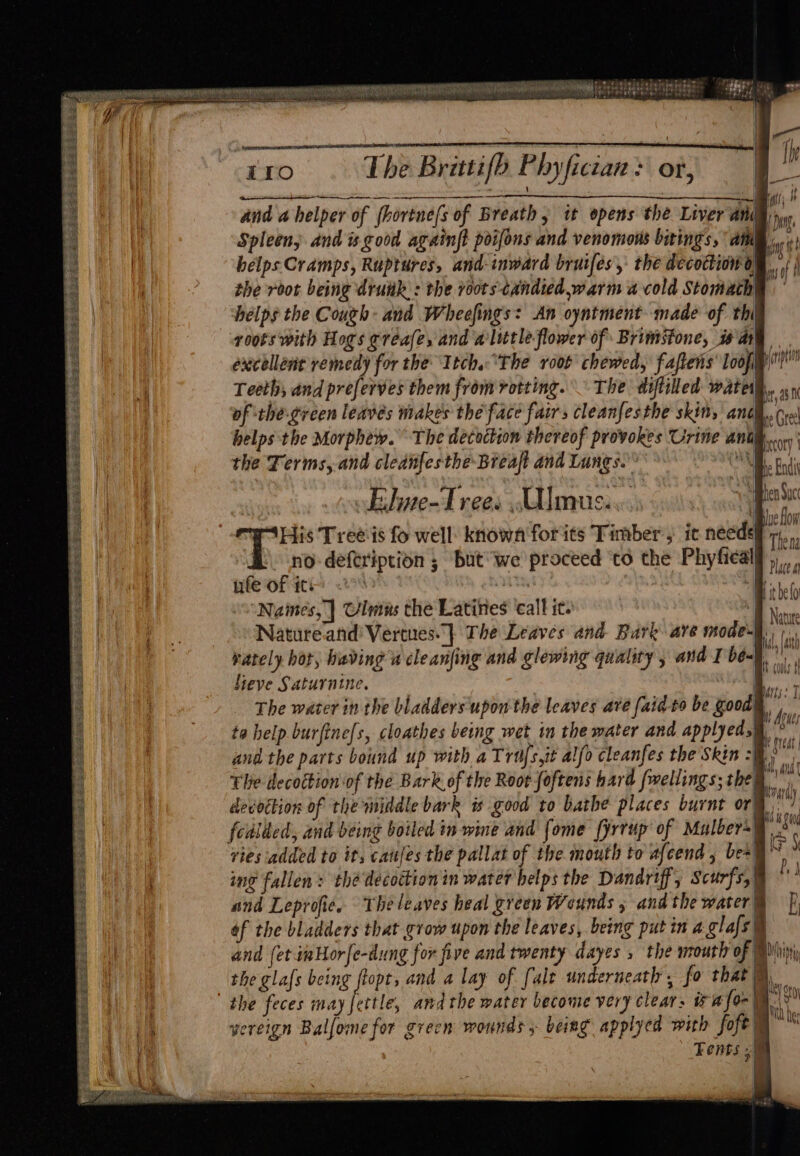 110 The Brittiſh Phyſician : or,
and a helper of ſhortneſs of Breath, it opens the Liver and
Spleen, and is good againſt poiſons and venomous bitings, and
helps Cramps, Ruptures, and inward bruiſes, the decoction of
the root being drunk : the roots candied, warm a cold Stomach
helps the Cough and Wheeſings : An oyntment made of the
roots with Hogs greaſe, and a little flower of Brimſtone, is an
excellent remedy for the Itch. The root chewed, faſtens looſe
Teeth, and preſerves them from rotting. The diſtilled water
of the green leaves makes the face fair, cleanſes the skin, and
helps the Morphew. The decoction thereof provokes Urine and
the Terms, and cleanſes the Breaſt and Lungs.
Elme-Tree. Ulmus.
THis Tree is ſo well known for its Timber, it needs
no deſcription ; but we proceed to the Phyſical
uſe of it.
Names,] Ulmus the Latines call it.
Nature and Vertues.] The Leaves and Bark are mode-
rately hot, having a cleanſing and glewing quality, and I be-
lieve Saturnine.
The water in the bladders upon the leaves are ſaid to be good
to help burſtneſs, cloathes being wet in the water and applyed,
and the parts bound up with a Truſs, it alſo cleanſes the Skin :
The decoction of the Bark of the Root ſoftens hard ſwellings; the
decoction of the middle bark is good to bathe places burnt or
ſcalded, and being boiled in wine and ſome ſyrrup of Mulber-
ries added to it, cauſes the pallat of the mouth to aſcend, be-
ing fallen : the decoction in water helps the Dandriff, Scurfs,
and Leproſie. The leaves heal green Wounds, and the water
of the bladders that grow upon the leaves, being put in a glaſs
and ſet in Horſe-dung for five and twenty dayes, the mouth of
the glaſs being ſtopt, and a lay of ſalt underneath, ſo that
the feces may ſettle, and the water become very clear, is a ſo-
vereign Balſome for green wounds, being applyed with ſoft
Tents ;